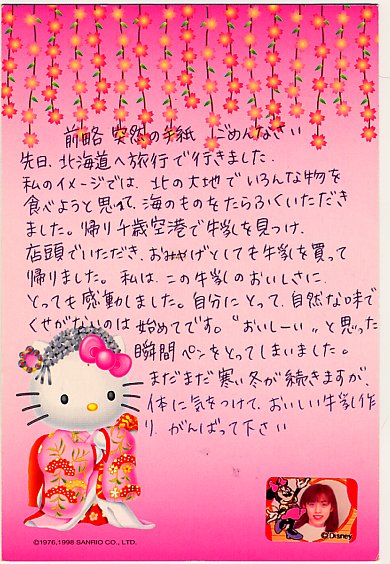 前略 突然の手紙 ごめんなさい
先日、北海道へ旅行で行きました。
私のイメージでは、北の大地でいろんな物を
食べようと思って、海のものをたらふくいただき
ました。帰り千歳空港で牛乳を見つけ、
店頭でいただき、おみやげとしても牛乳を買って
帰りました。私は、この牛乳のおいしさに、
とっても感動しました。自分にとって、自然な味で
くせがないのは 始めてです。“おいしーい”と思った
瞬間ペンをとってしまいました。
まだまだ寒い冬が続きますが、
体に気をつけて、おいしい牛乳作
り、がんばって下さい
©1976,1998 SANRIO CO., LTD.
©Disney